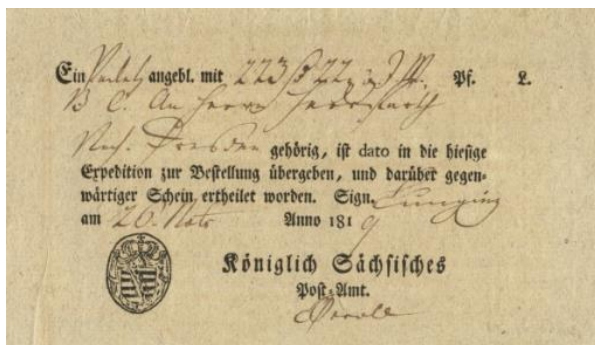 Ein Packet angebl. mit 223 22 Pf. L.
B C. An Herrn
Nach Dresden gehörig, ist dato in die hiesige
Expedition zur Bestellung übergeben, und darüber gegen-
wärtiger Schein ertheilet worden. Sign.
am 20. Anno 1819
Königlich Sächsisches
Post-Amt.